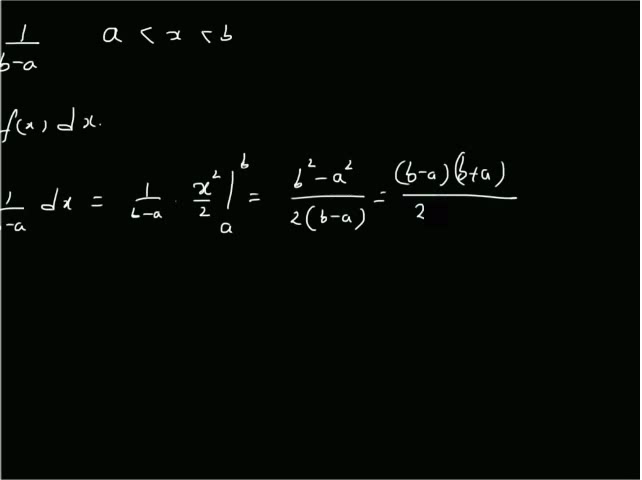 1/(b-a) a < x < b
f(x) dx.
1/(b-a) dx = 1/(b-a) · x²/2 |_a^b = (b² - a²)/(2(b-a)) = (b-a)(b+a)/2